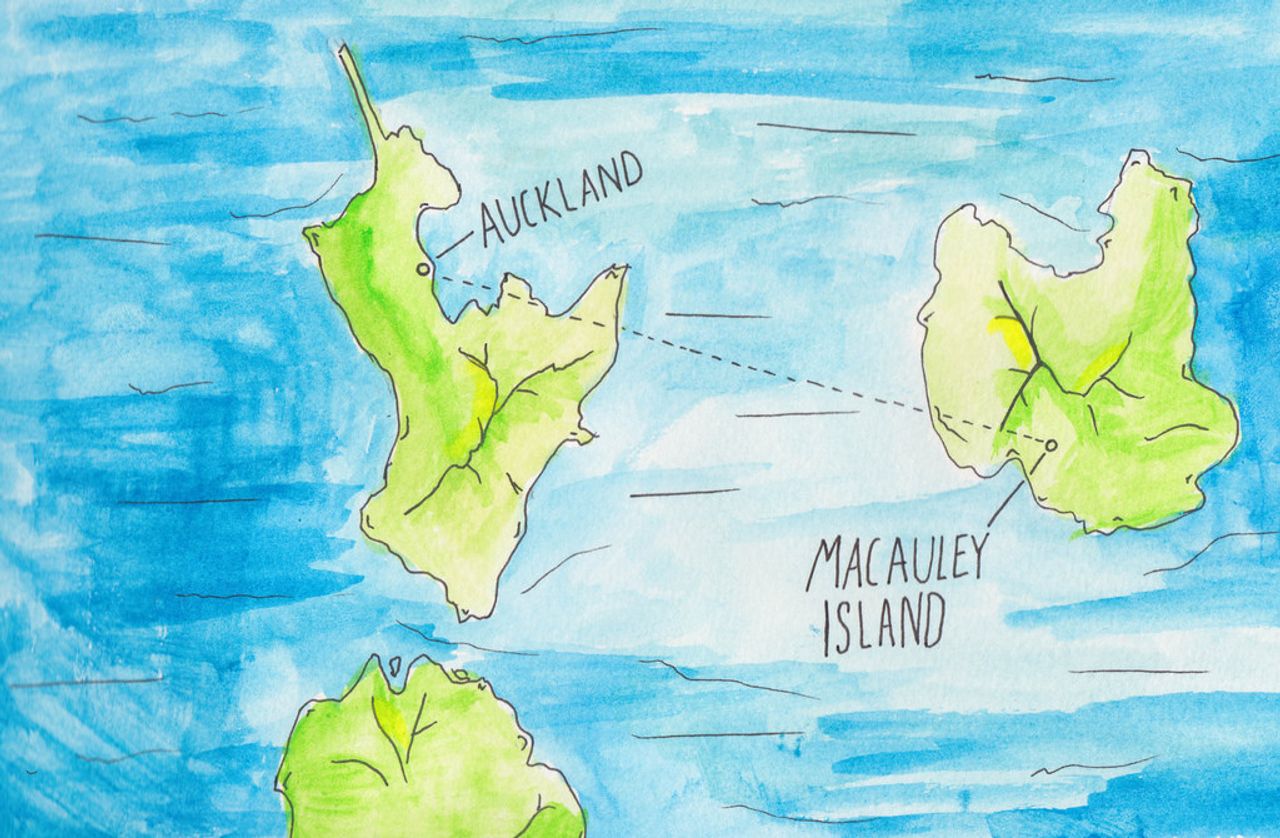 AUCKLAND
MACAULEY
ISLAND